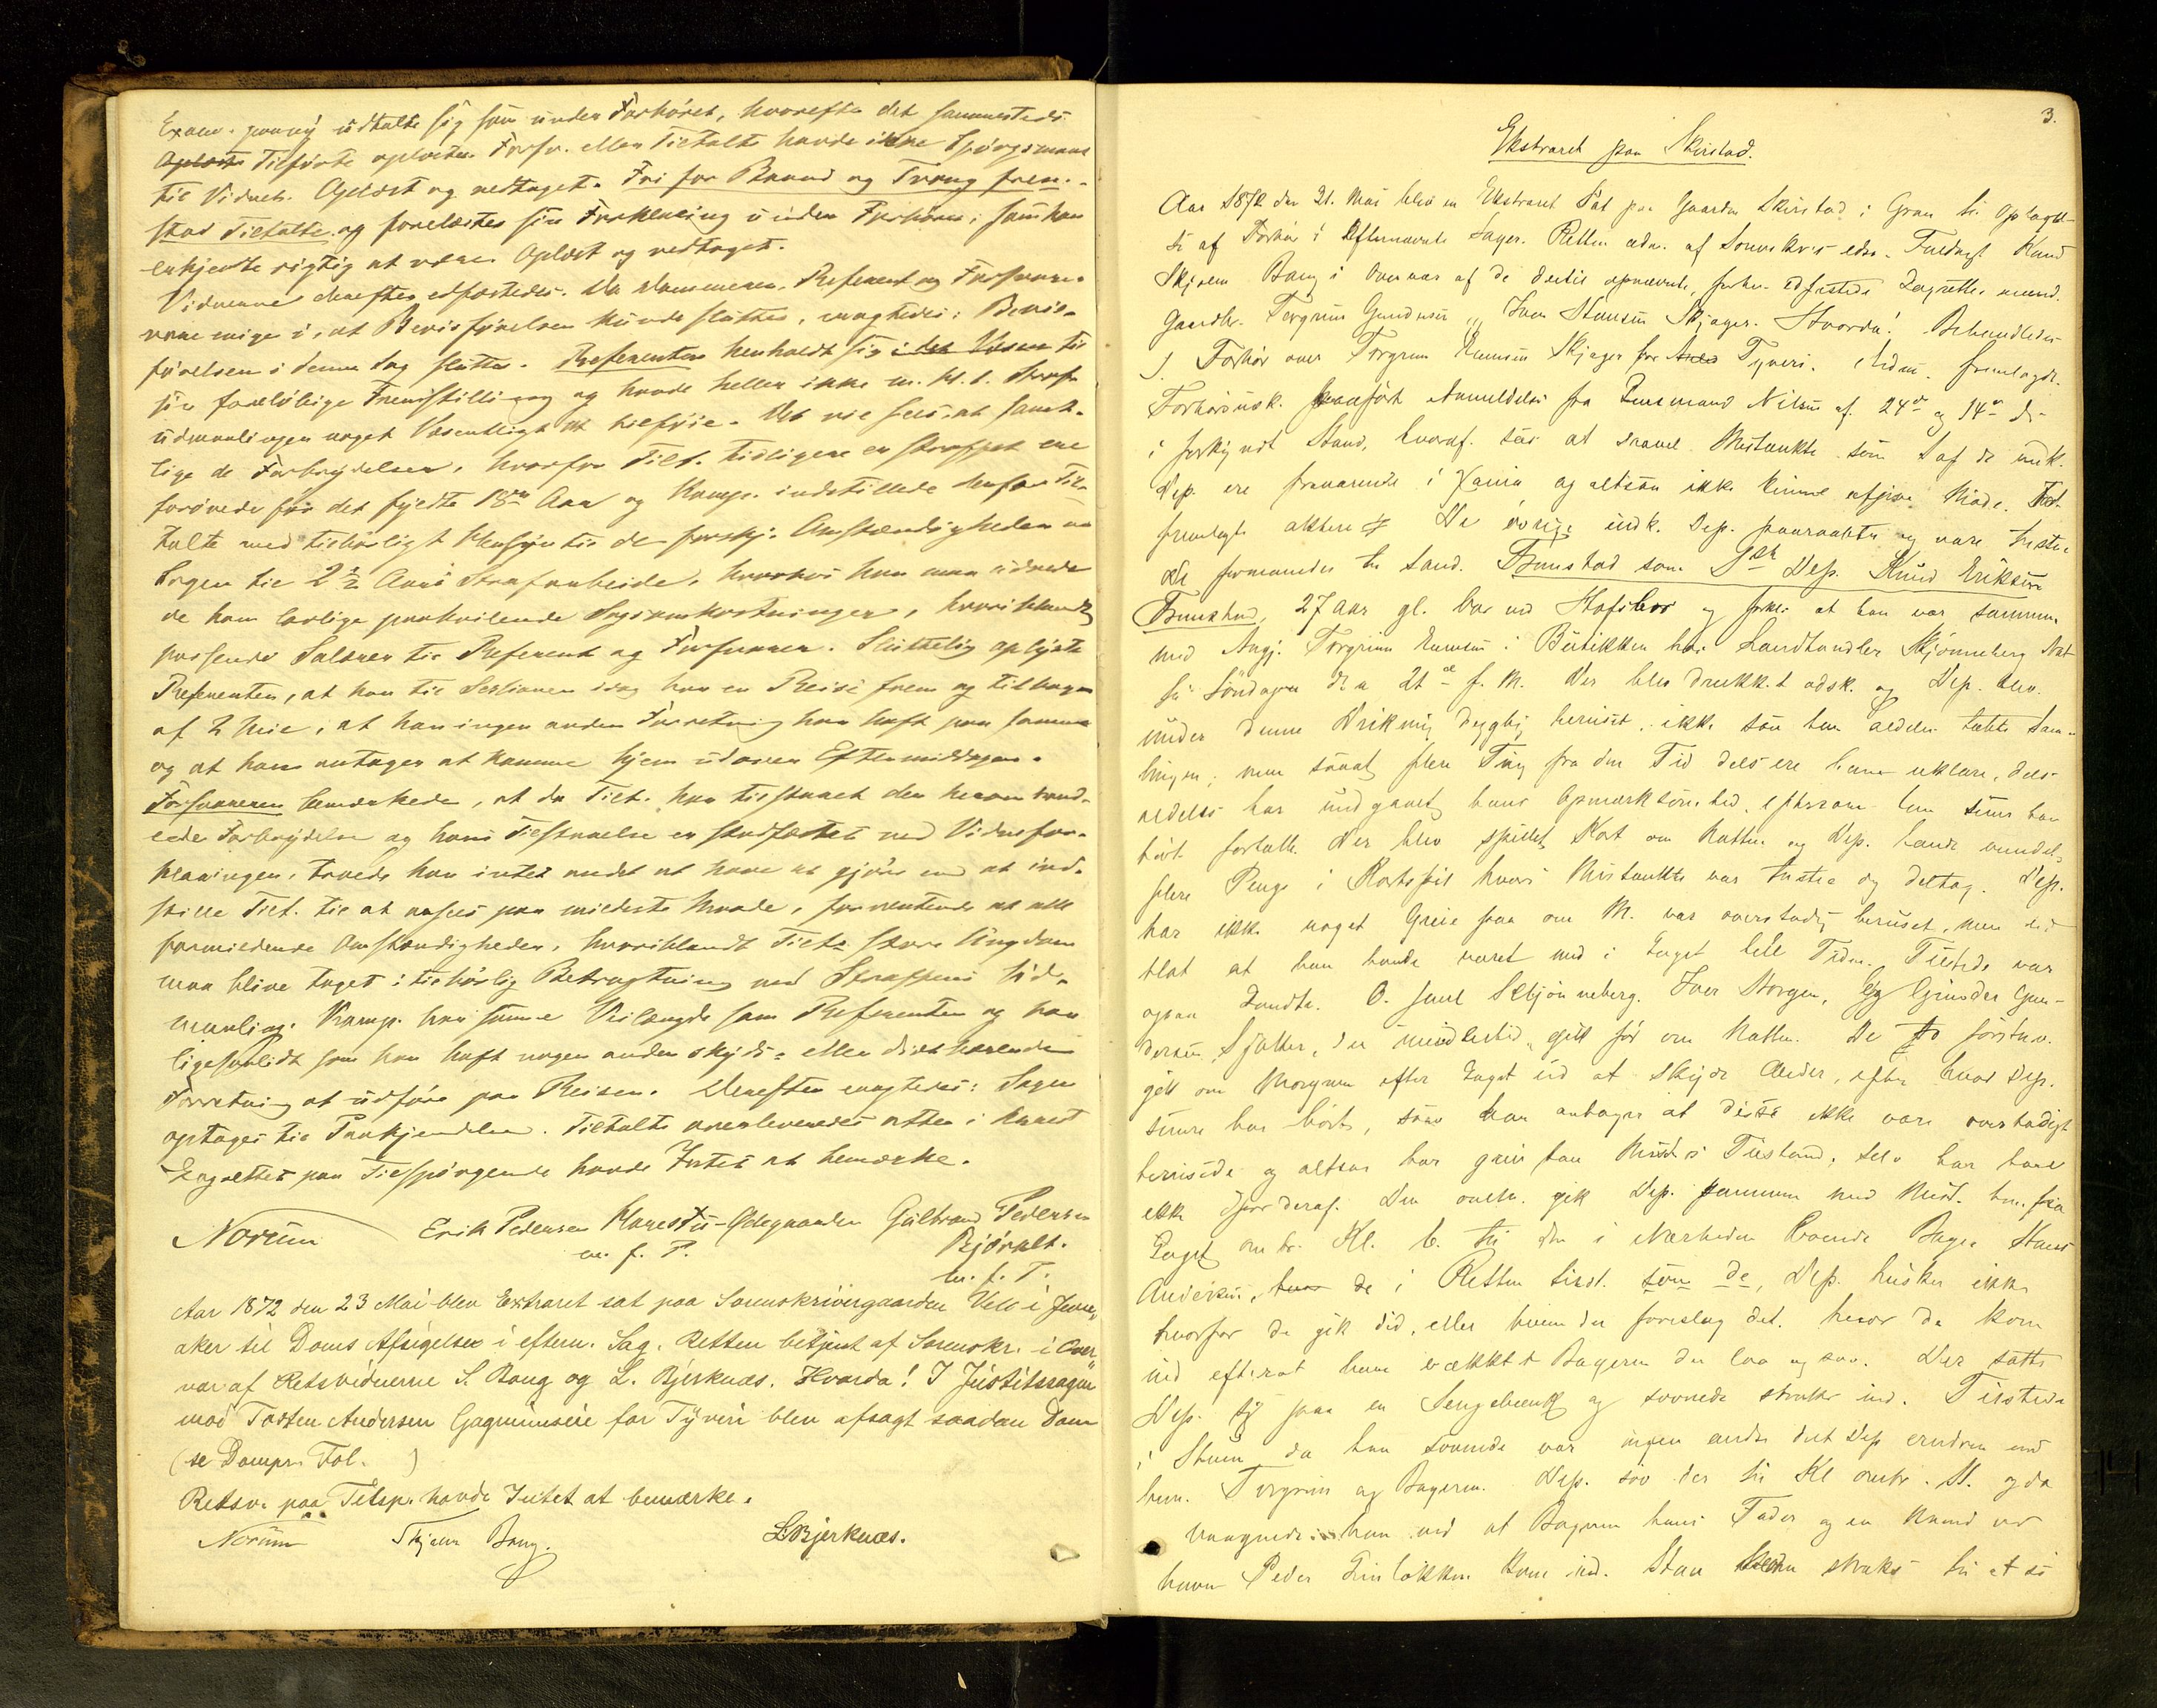 Exam. paany udtalte sig som under Forhöret, hvorefter det sammesteds
Oplæste Tilförte oplæstes. Forsv. eller Tiltalte havde ikke Spörgsmaal
til Vidnet. Oplæst og vedtaget. Fri for Baand og Tvang frem-
stod Tiltalte og forelæstes sin Forklaring under Forhöret, som han
erkjendte rigtig at være. Oplæst og vedtaget.
Vidnerne derefter edfæstedes. Da Dommeren, Referent og Forsvarer
vare enige i, at Bevisförelsen kunde sluttes, eragtedes: Bevis-
förelsen i denne Sag sluttes. Referenten henholdt sig i det Væsen til
sin forelöbige Fremstilling og havde heller ikke m. H. t. Straf-
udmaalingen noget Væsentligt at tilföie. Det vil sees, at samt-
lige de Forbrydelser, hvorfor Tilt. tidligere er straffet ere
forövede för det fyldte 18de Aar og Komp. indstillede derfor Til-
talte med tilbörligt Hensyn til de forskj. Omstændigheder ved
Sagen til 2 ½ Aars Strafarbeide, hvorhos han maa udrede
de ham lovlige paahvilende Sagsomkostninger, hvoriblandt
passende Salærer til Referent og Forsvarer. Sluttelig oplyste
Referenten, at han til Sessionen idag har en Reise frem og tilbage
af 2 Mile, at han ingen anden Forretning har havt paa samme
og at han antager at komme hjem udover Eftermiddagen.
Forsvareren bemærkede, at da Tilt. har tilstaaet den herom hand-
lede Forbrydelse og hans Tilstaaelse er stadfæstet ved Vidnefor-
klaringen, troede han intet andet at have at gjöre end at ind-
stille Tilt. til at ansees paa mildeste Maade, forventende at alle
formildende Omstændigheder, hvoriblandt Tilt.s store Ungdom
maa blive taget i tilbörlig Betragtning ved Straffens Ud-
maaling. Komp. har samme Veilængde som Referenten og har
ligesaalidt som han haft nogen anden skyds- eller diæthavende
Forretning at udföre paa Reisen. Derefter eragtedes: Sagen
optages til Paakjendelse. Tiltalte overleveredes atter i Arrest
Lagrettet paa Tilspörgende havde Intet at bemærke.
Norum Erik Pedersen Ödegaarden Gulbrand Pedersen
m. f. P. Björnlt.
m. f. P.
Aar 1872 den 23 Mai blev Extraret sat paa Sorenskrivergaarden Velo i Jevn-
aker til Doms Afsigelse i eftern. Sag. Retten betjent af Sorenskr. i Over-
vær af Retsvidnerne S. Bang og L. Bjerknæs. Hvorda! I Justitssagen
mod Tosten Andersen for Tyveri blev afsagt saadan Dom
(se Dompr. Fol. )
Retsv. paa Tilsp. havde Intet at bemærke.
Norum Skjelm Bang. L. Bjerknæs.
3.
Ekstraret paa Skirstad.
Aar 1872 den 21. Mai blev en Ekstraret sat paa Gaarden Skirstad i Gran til Optagel-
se af Forhör i Efternævnte Sager. Retten adm. af Sorenskrivs edsv. Fuldmægt Knud
Skjelm Bang i Overvær af de dertil opnævnte, forhen edfæstede Lagrettesmænd.
Gaardbr. Torgrim Gundersen Iver Hansen Skjager. Hvorda! Behandledes
1. Forhör over Torgrim Skjager for Tyveri. Adm. fremlagde
Forhörsudsk. paaført Anmeldelse fra Lensmand Nilsen af 24de og 14de ds
i forkyndt Stand, hvoraf sees at saavel Mistænkte som 1 af de indk.
Dep. ere fraværende i og altsaa ikke kunne afgive Möde.
fremlagte akteres De övrige indk. Dep. paaraabtes og vare tilstede
De formanedes til Sand. Framstad som 1ste Dep. Knud Eriksen
Framstad, 27 Aar gl. bor ved Hofsbro og forkl. at han var sammen
med Angj. Torgrim i Butikken hos Landhandler Skjönneberg Nat
til Söndagen den 21de f. M. Der blev drukket adsk. og Dep. blev
under denne Drikning dygtig beruset, ikke saa han aldeles tabte Sam-
lingen, men saavat flere Ting fra den Tid dels ere ham uklare, dels
aldeles har undgaaet hans Opmærksomhed, eftersom han senere har
hört fortælle. Der blev spillet Kort om Natten og Dep. havde vundet
flere Penge i Kortspil hvori Mistænkte var tilstede og deltog. Dep.
har ikke noget Greie paa om M. var overstadig beruset, men ved
blot at han havde været med i Laget hele Tiden. Tilstede var
ogsaa Landh. O. Juul Skjönneberg. Iver Morgen, Og Gunder Gun-
dersen Sjatter, der imidlertid gik för om Natten. De to förstnv.
gik om Morgenen efter Laget ud at skyde Ænder, efter hvad Dep.
senere har hört, saa han antager at disse ikke vare overstadigt
berusede og altsaa har greie paa Mist's Tilstand; selv har han
ikke Greie deraf. Den omh. gik Dep. sammen med Mist. hen fra
Laget omtr. Kl. 6. til den i Nærheden boende Bager Hans
Andersen, de i Retten tilst. som de, Dep. husker ikke
hvorfor de gik did, eller hvem der foreslog det, hvor de kom
ind efterat have vækket Bageren der laa og sov. Der satte
Dep. sig paa en Sengebænk og sovnede strax ind. Tilstede
i Stuen da han sovnede var ingen andre det Dep erindrer end
ham, Torgrim og Bageren. Dep. sov der til Kl omtr. 11. og da
vaagnede han ved at Bageren hans Fader og en Mand ved
Navn Peder Linlökken kom ind. Han straks til at se